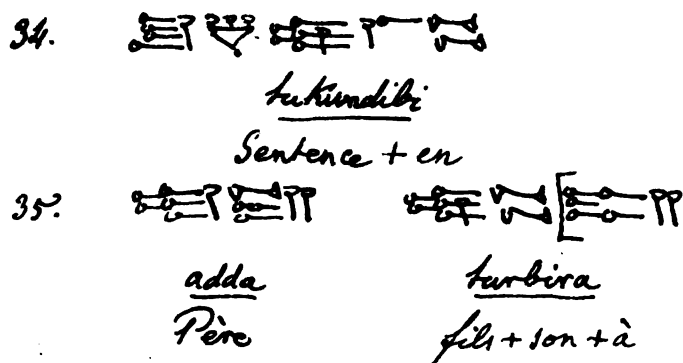 34. 𒋗𒃻𒌉𒇲𒁉
tukundibi
Sentence + en
35. 𒀜𒁕 𒌉𒁉[𒊏
adda turbira
Père fils + son + à